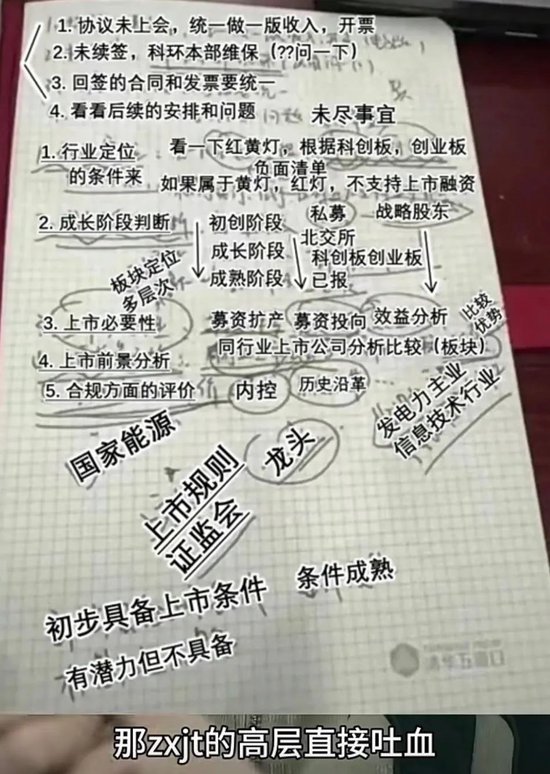 1. 协议未上会,统一做一版收入,开票
2.未续签,科环本部维保(??问一下)
3. 回签的合同和发票要统一
4. 看看后续的安排和问题
未尽事宜
1. 行业定位的条件来
看一下红黄灯,根据科创板,创业板
负面清单
如果属于黄灯,红灯,不支持上市融资
2. 成长阶段判断
初创阶段
私募
战略股东
成长阶段
北交所
科创板创业板
成熟阶段
已报
板块定位
多层次
3. 上市必要性
募资扩产
募资投向
效益分析
比较优势
4. 上市前景分析
同行业上市公司分析比较(板块)
5. 合规方面的评价
内控
历史沿革
发电力主业
信息技术行业
国家能源
龙头
上市规则
证监会
初步具备上市条件
条件成熟
有潜力但不具备
那zxjt的高层直接吐血